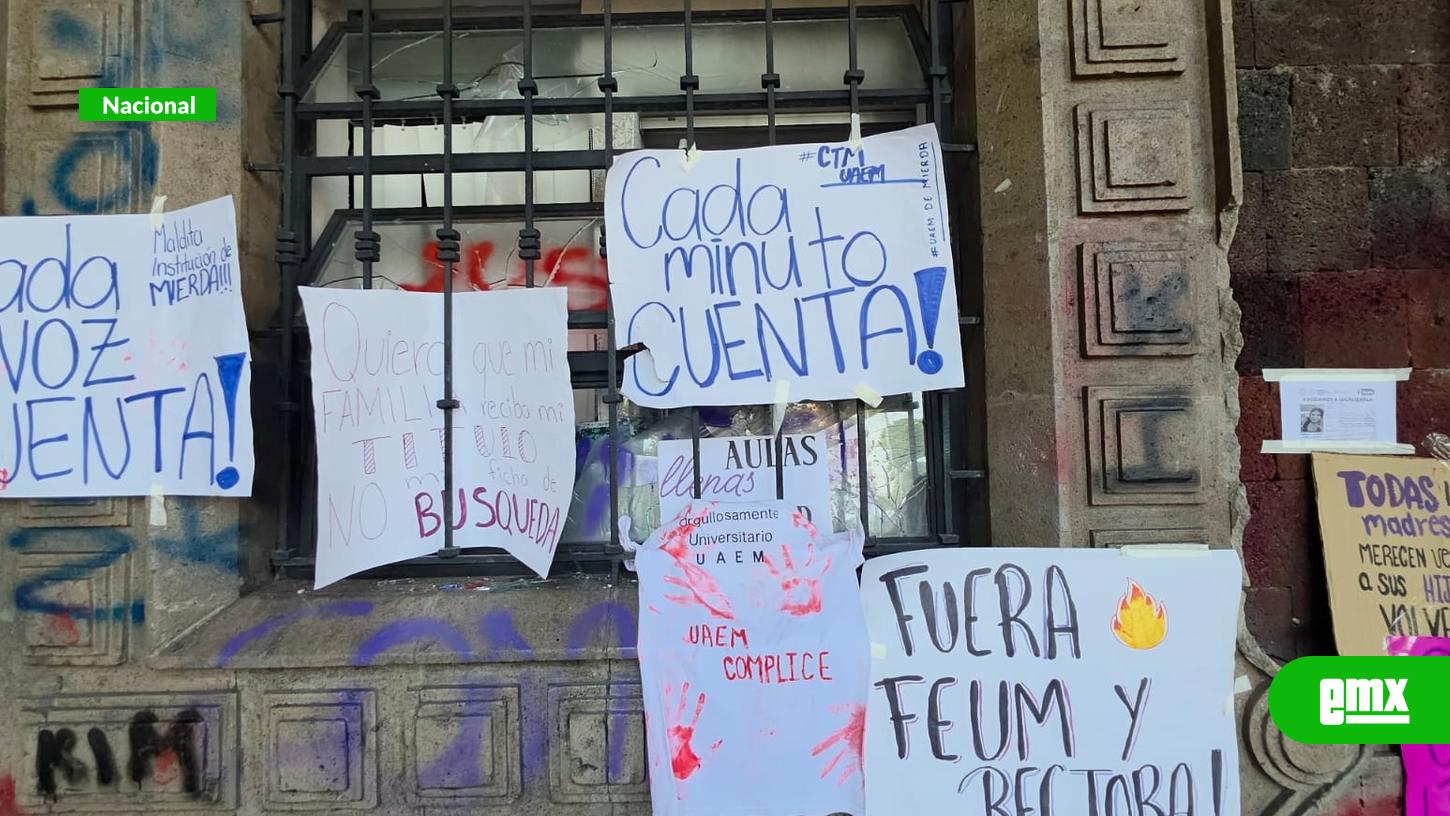 Nacional
ada
VOZ
UENTA!
Maldita
Institución de
MIERDA!!!
Quiero que mi
FAMILIA reciba mi
TITULO
NO mi ficha de
BUSQUEDA
#CTM
UAEM
#UAEM DE MIERDA
Cada
minuto
CUENTA!
AULAS
llenas
D
orgullosamente
Universitario
UAEM
UAEM
COMPLICE
FUERA
FEUM Y
RECTORA!
TODAS
madres
MERECEN
a sus HIJ
VOLVE
emx